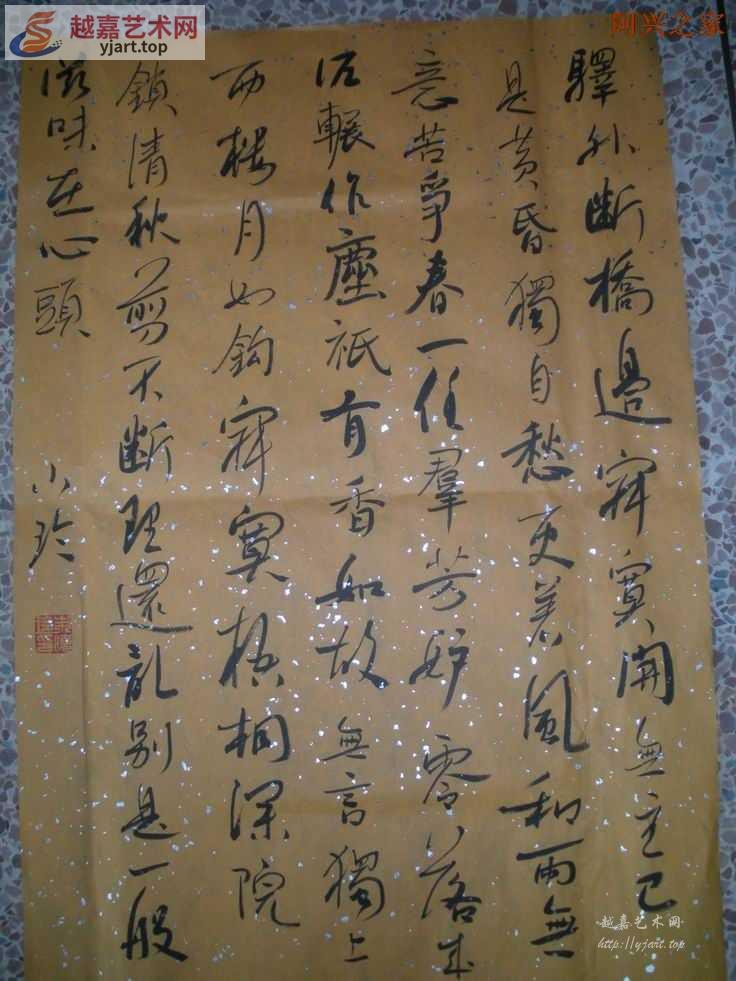 越嘉艺术网
yjart.top
阿兴之家
驛外斷橋邊寂寞開無主已
是黄昏獨自愁更着風和雨無
意苦爭春一任羣芳妒零落成
泥輾作塵祇有香如故無言獨上
西樓月如鈎寂寞梧桐深院
鎖清秋剪不斷理還亂別是一般
滋味在心頭
小玲
越嘉艺术网
http://yjart.top